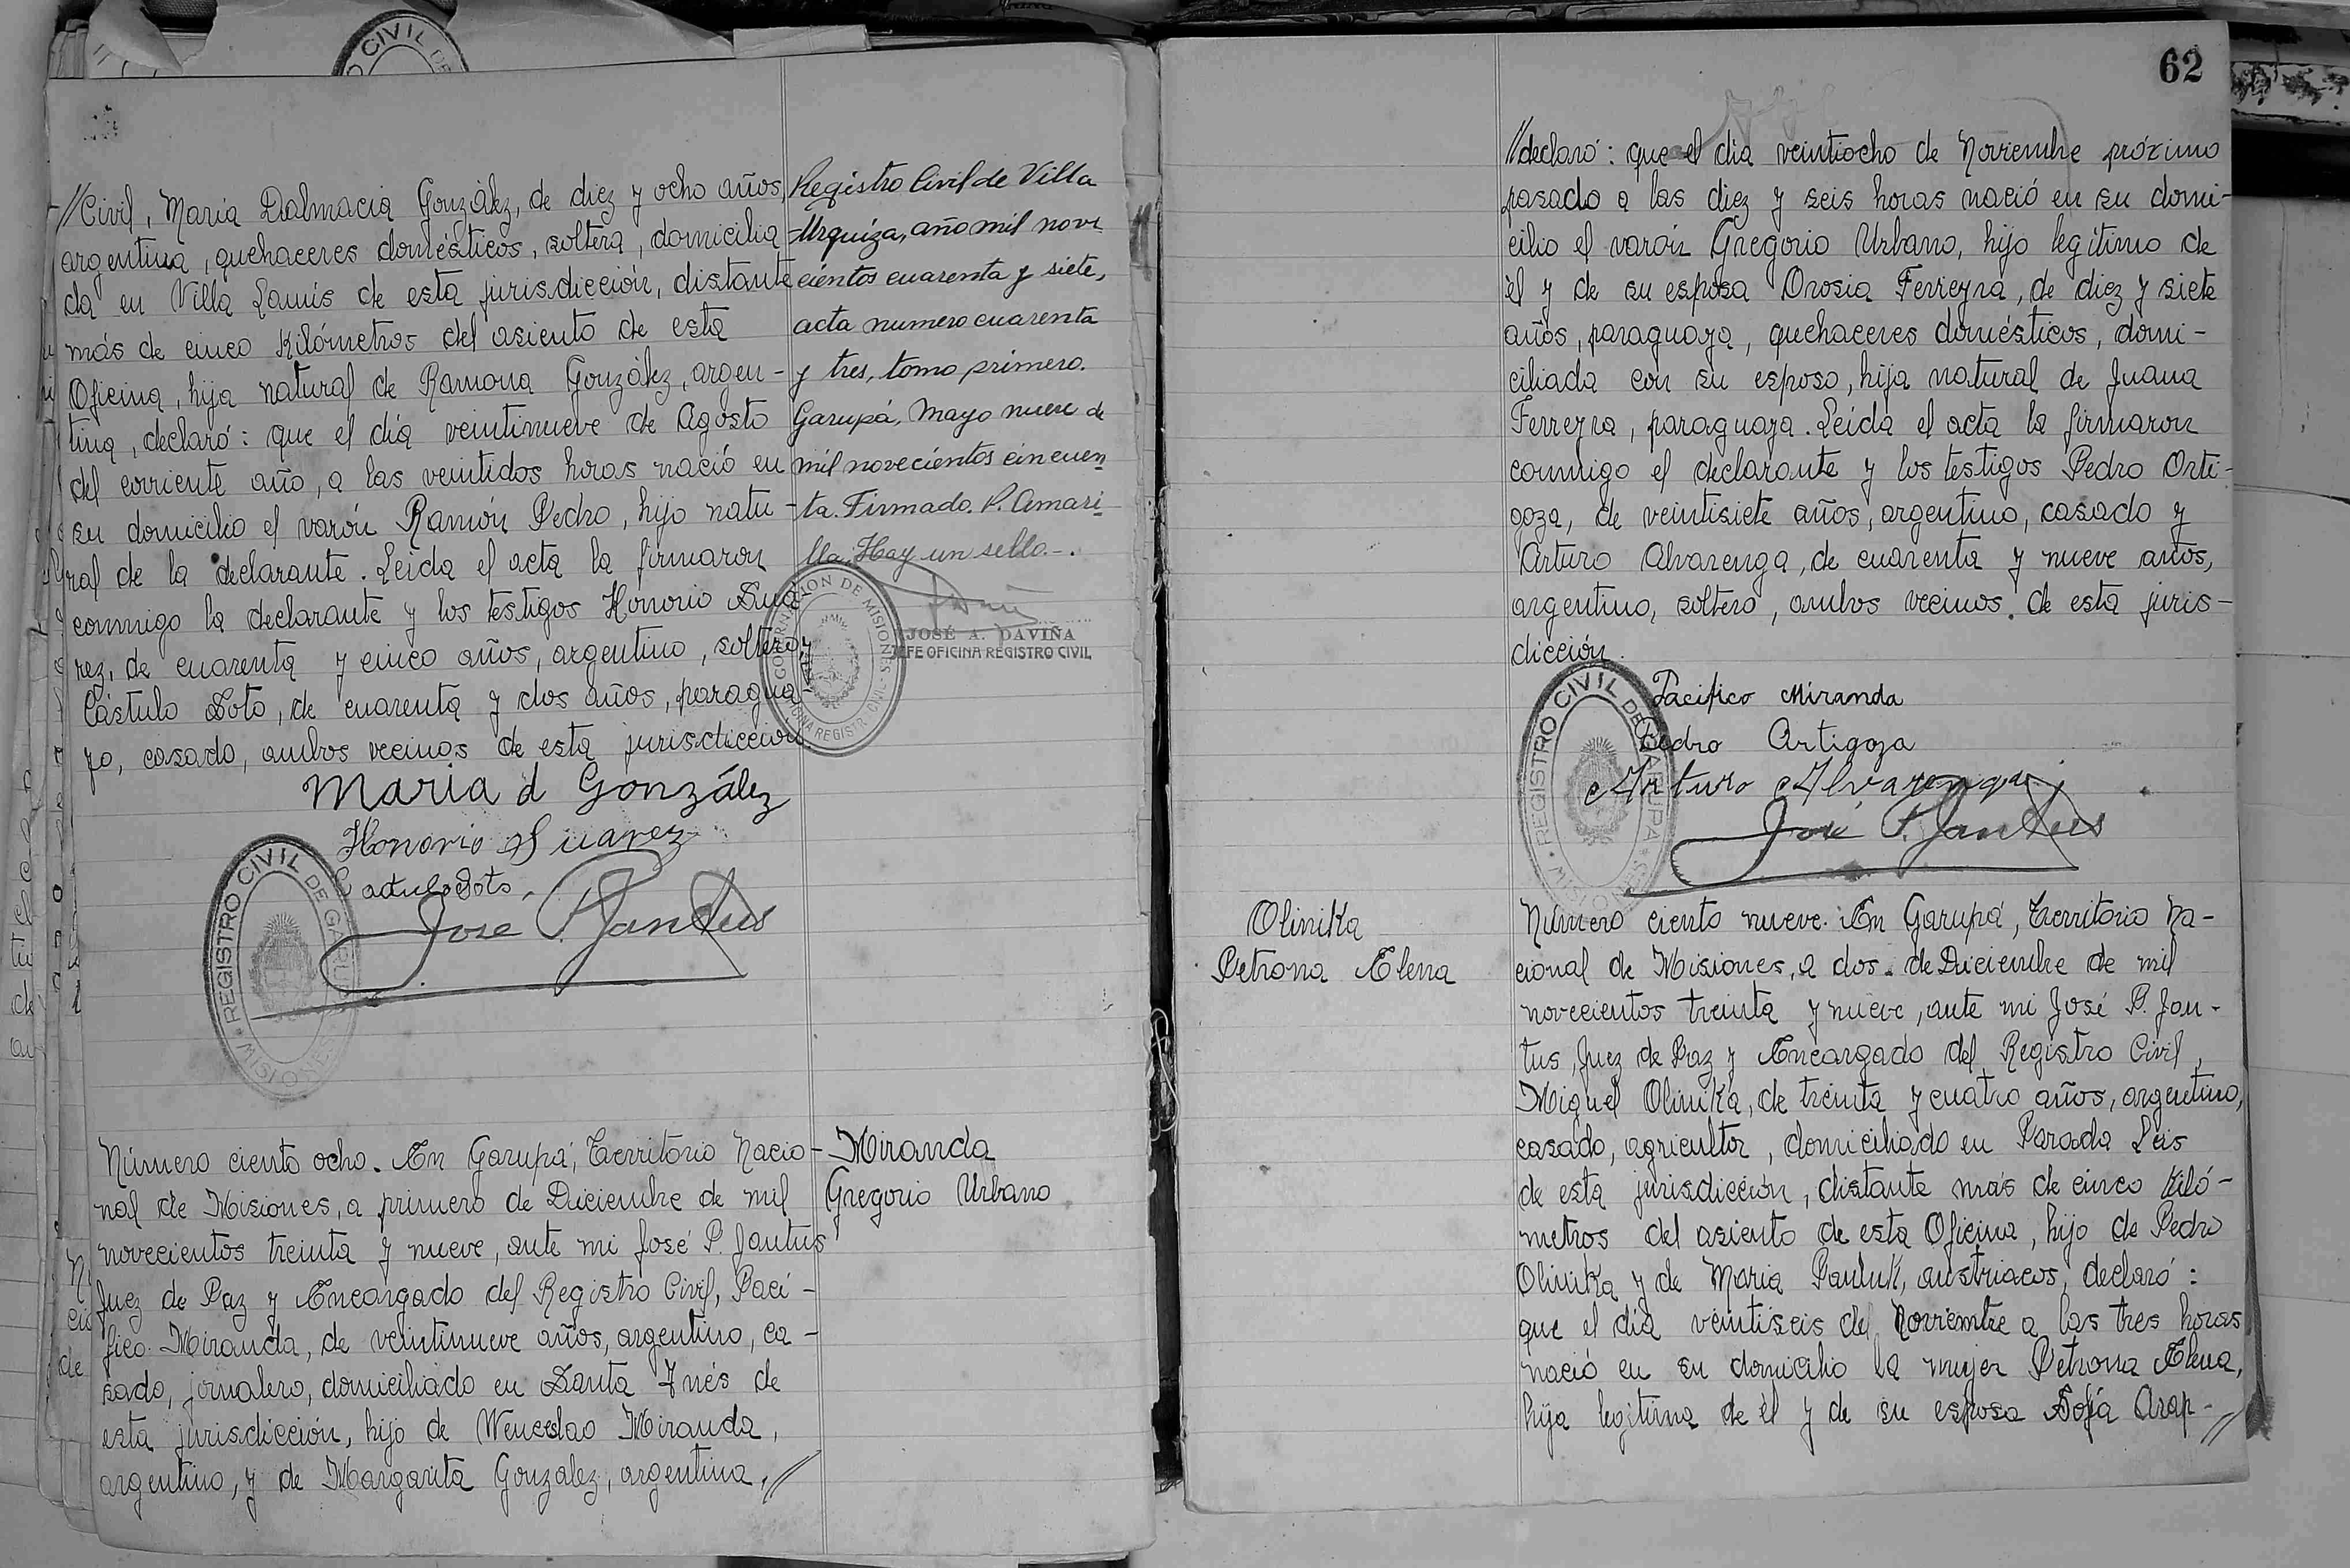 //Civil, María Dalmacia González, de diez y ocho años,
argentina, quehaceres domésticos, soltera, domicilia-
da en Villa Lanús de esta jurisdicción, distante
más de cinco kilómetros del asiento de esta
Oficina, hija natural de Ramona González, argen-
tina, declaró: que el día veintinueve de Agosto
del corriente año, a las veintidos horas nació en
su domicilio el varón Ramón Pedro, hijo natu-
ral de la declarante. Leída el acta la firmaron
conmigo la declarante y los testigos Honorio Sua
rez, de cuarenta y cinco años, argentino, soltero y
Cástulo Soto, de cuarenta y dos años, paragua
yo, casado, ambos vecinos de esta jurisdicción.
Maria d González
Honorio Suarez
José P. Jantus
REGISTRO CIVIL DE GARUPA
MISIONES
Registro Civil de Villa
Urquiza, año mil nove
cientos cuarenta y siete,
acta numero cuarenta
y tres, tomo primero.
Garupá, Mayo nueve de
mil novecientos cincuen
ta. Firmado. P. Amari-
lla. Hay un sello.-.
GOBERNACION DE MISIONES
JOSÉ A. DAVIÑA
JEFE OFICINA REGISTRO CIVIL
Número ciento ocho. En Garupá, Territorio Nacio-
nal de Misiones, a primero de Diciembre de mil
novecientos treinta y nueve, ante mi José P. Jantus
Juez de Paz y Encargado del Registro Civil, Paci-
fico Miranda, de veintinueve años, argentino, ca-
sado, jornalero, domiciliado en Santa Inés de
esta jurisdicción, hijo de Wenceslao Miranda,
argentino, y de Margarita Gonzalez, argentina,//
Miranda
Gregorio Urbano
62
//declaró: que el día veintiocho de Noviembre próximo
pasado a las diez y seis horas nació en su domi-
cilio el varón Gregorio Urbano, hijo legítimo de
él y de su esposa Orosia Ferreyra, de diez y siete
años, paraguaya, quehaceres domésticos, domi-
ciliada con su esposo, hija natural de Juana
Ferreyra, paraguaya. Leída el acta la firmaron
conmigo el declarante y los testigos Pedro Orti-
goza, de veintisiete años, argentino, casado y
Arturo Alvarenga, de cuarenta y nueve años,
argentino, soltero, ambos vecinos de esta juris-
dicción.
Pacifico Miranda
Pedro Artigoza
Arturo Alvarenga
José P. Jantus
REGISTRO CIVIL DE GARUPA
MISIONES
Olinika
Petrona Elena
Número ciento nueve. En Garupá, Territorio Na-
cional de Misiones, a dos de Diciembre de mil
novecientos treinta y nueve, ante mi José P. Jan-
tus, Juez de Paz y Encargado del Registro Civil,
Miguel Olinika, de treinta y cuatro años, argentino,
casado, agricultor, domiciliado en Parada Leis
de esta jurisdicción, distante más de cinco kiló-
metros del asiento de esta Oficina, hijo de Pedro
Olinika y de Maria Pauluk, austriacos, declaró:
que el día veintiseis de Noviembre a las tres horas
nació en su domicilio la mujer Petrona Elena,
hija legitima de él y de su esposa Sofía Arap-//